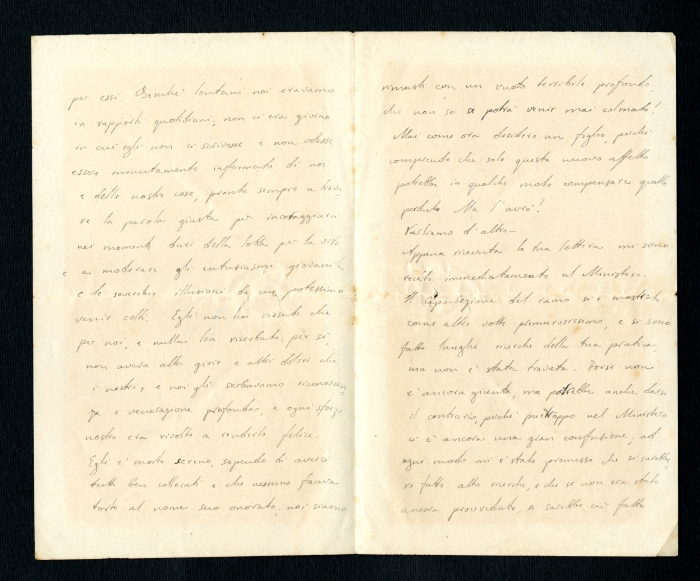 per essi. Benché lontani noi eravamo
in rapporti quotidiani, non ci era giorno
in cui egli non ci scrivesse e non volesse
essere minutamente informato di noi
e delle nostre cose, pronto sempre a trova,
re la parola giusta per incoraggiarci
nei momenti duri della lotta per la vita
e a moderare gli entusiasmi giovanili
e le soverchie illusioni da cui potessimo
venir colti. Egli non ha vissuto che
per noi, e nulla ha riserbato per sé,
non aveva altri gioie e altri dolori che
i nostri, e noi gli serbavamo riconoscen,
za e venerazione profonda, e ogni sforzo
nostro era rivolto a renderlo felice.
Egli è morto sereno, sapendo di averci
tutti ben collocati e che nessuno faceva
torto al nome suo onorato, noi siamo
rimasti con un vuoto terribile profondo,
che non so se potrà venir mai colmato!
Mai come ora desidero un figlio, perché
comprendo che solo questo nuovo affetto
potrebbe in qualche modo compensare quello
perduto. Ma l'avrò?
Parliamo d'altro—
Appena ricevuta la tua lettera mi sono
recato immediatamente al Ministero.
Il capo-sezione del ramo si è mostrato
come altre volte premurosissimo, e si sono
fatte lunghe ricerche della tua pratica,
ma non è stata trovata. Forse non
è ancora giunta, ma potrebbe anche darsi
il contrario, perché purtroppo nel Ministero
vi è ancora una gran confusione, ad
ogni modo mi è stato promesso che si sarebbe,
ro fatte altre ricerche, e che se non era stato
ancora provveduto, si sarebbe ciò fatto